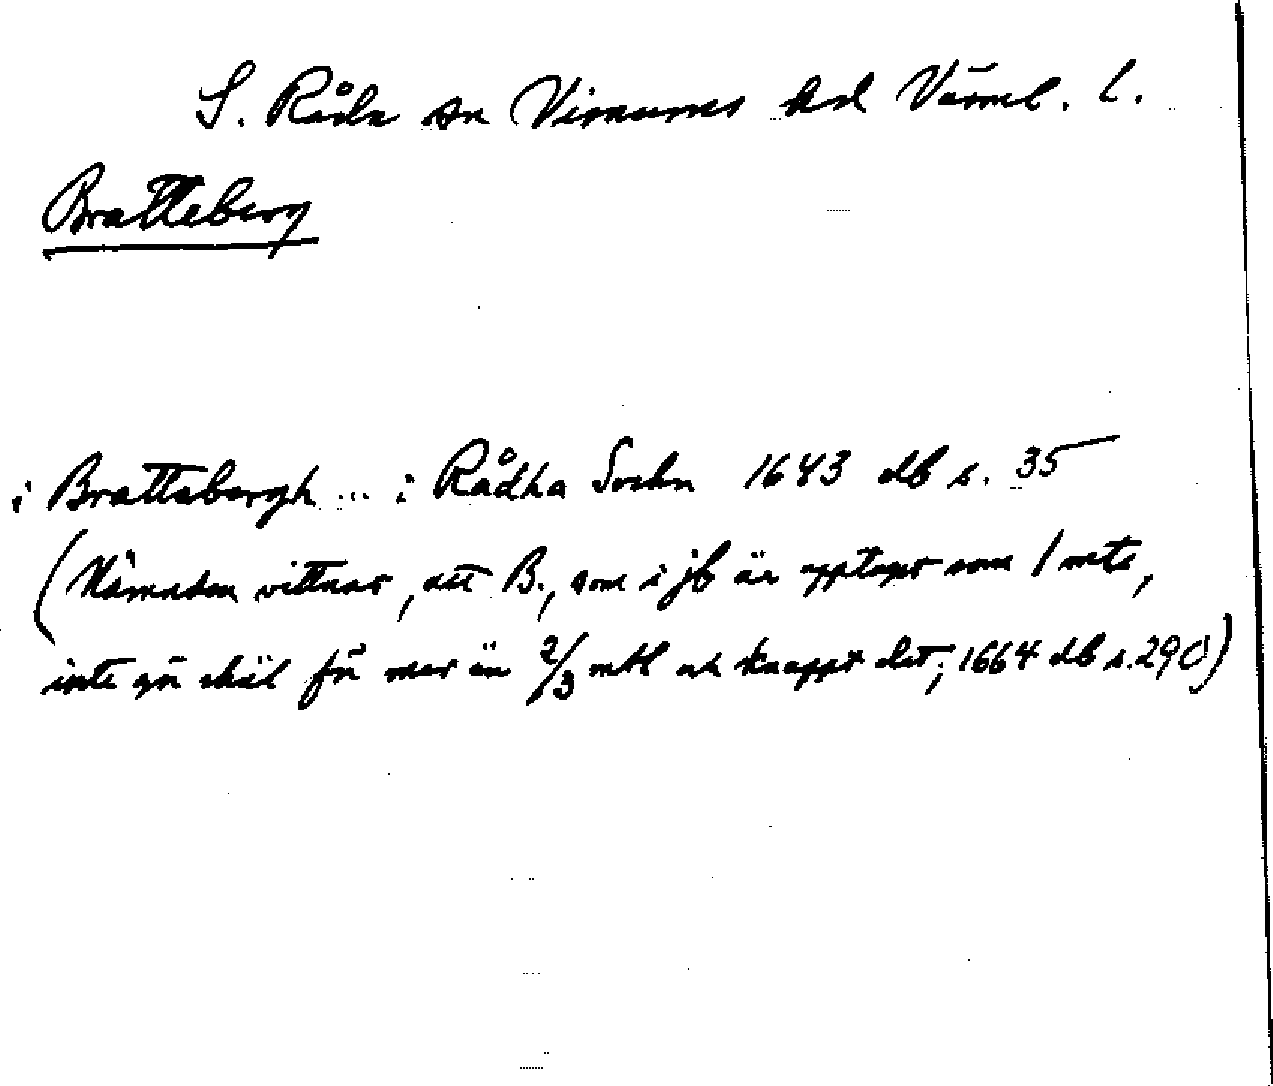 S. Råda sn Visnums hd Värml. l.
Bratteberg
i Brattebergh ... i Rådha Sochn 1643 db s. 35
(Nämnden vittnar, att B., som i jb är upptaget som 1 mtl,
inte gör skäl för mer än 2/3 mtl och knappt det; 1664 db s. 290)